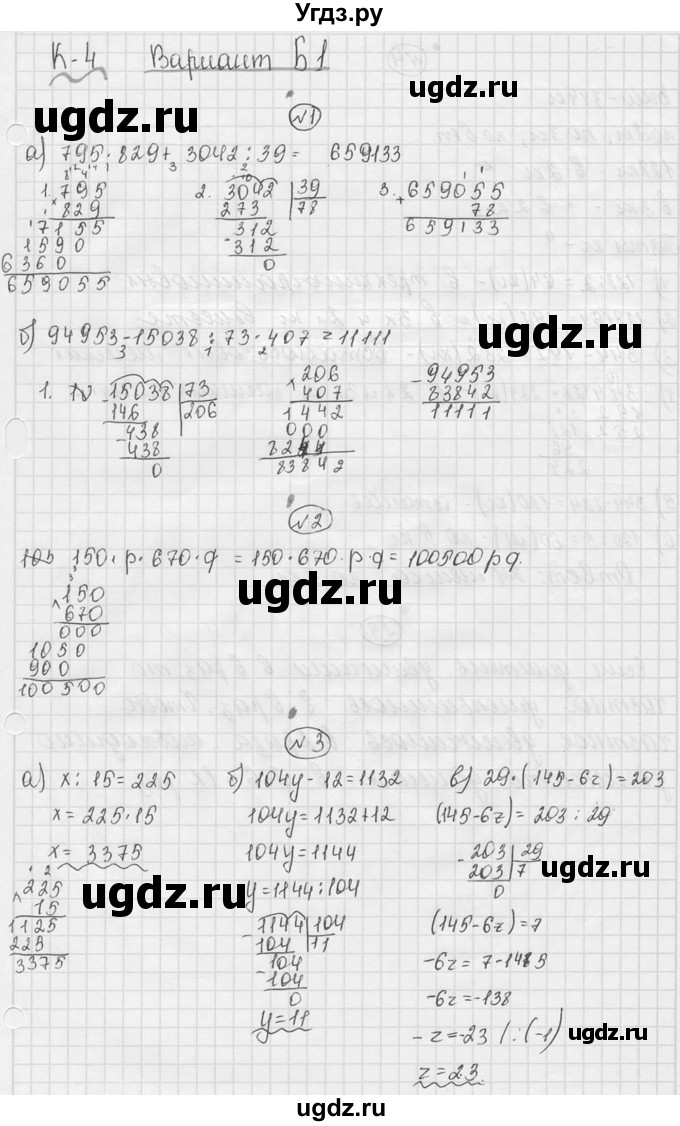 Угдз.ру
К-4 Вариант Б1
№1
а) 795 · 829 + 3042 : 39 = 659133
1. 795
× 829
7155
1590
6360
659055
2. 3042 39
273 78
312
- 312
0
3. 659055
+ 78
659133
б) 94953 - 15038 : 73 · 407 = 11111
3 1 2
1. - 15038 73
146 206
- 438
- 438
0
206
× 407
1442
000
824
83842
- 94953
83842
11111
№2
150 · р · 670 · q = 150 · 670 · р · q = 100500 р q.
150
× 670
000
1050
900
100500
№3
а) x : 15 = 225
x = 225 · 15
x = 3375
225
× 15
1125
225
3375
б) 104y - 12 = 1132
104y = 1132 + 12
104y = 1144
y = 1144 : 104
- 1144 104
104 11
- 104
104
0
y = 11
в) 29 · (145 - 6z) = 203
(145 - 6z) = 203 : 29
- 203 29
203 7
0
(145 - 6z) = 7
- 6z = 7 - 145
- 6z = -138
- z = -23 / : (-1)
z = 23
ugdz.ru
ugdz.ru
ugdz.ru
ugdz.ru
ugdz.ru
ugdz.ru
ugdz.ru
ugdz.ru
ugdz.ru
ugdz.ru
ugdz.ru